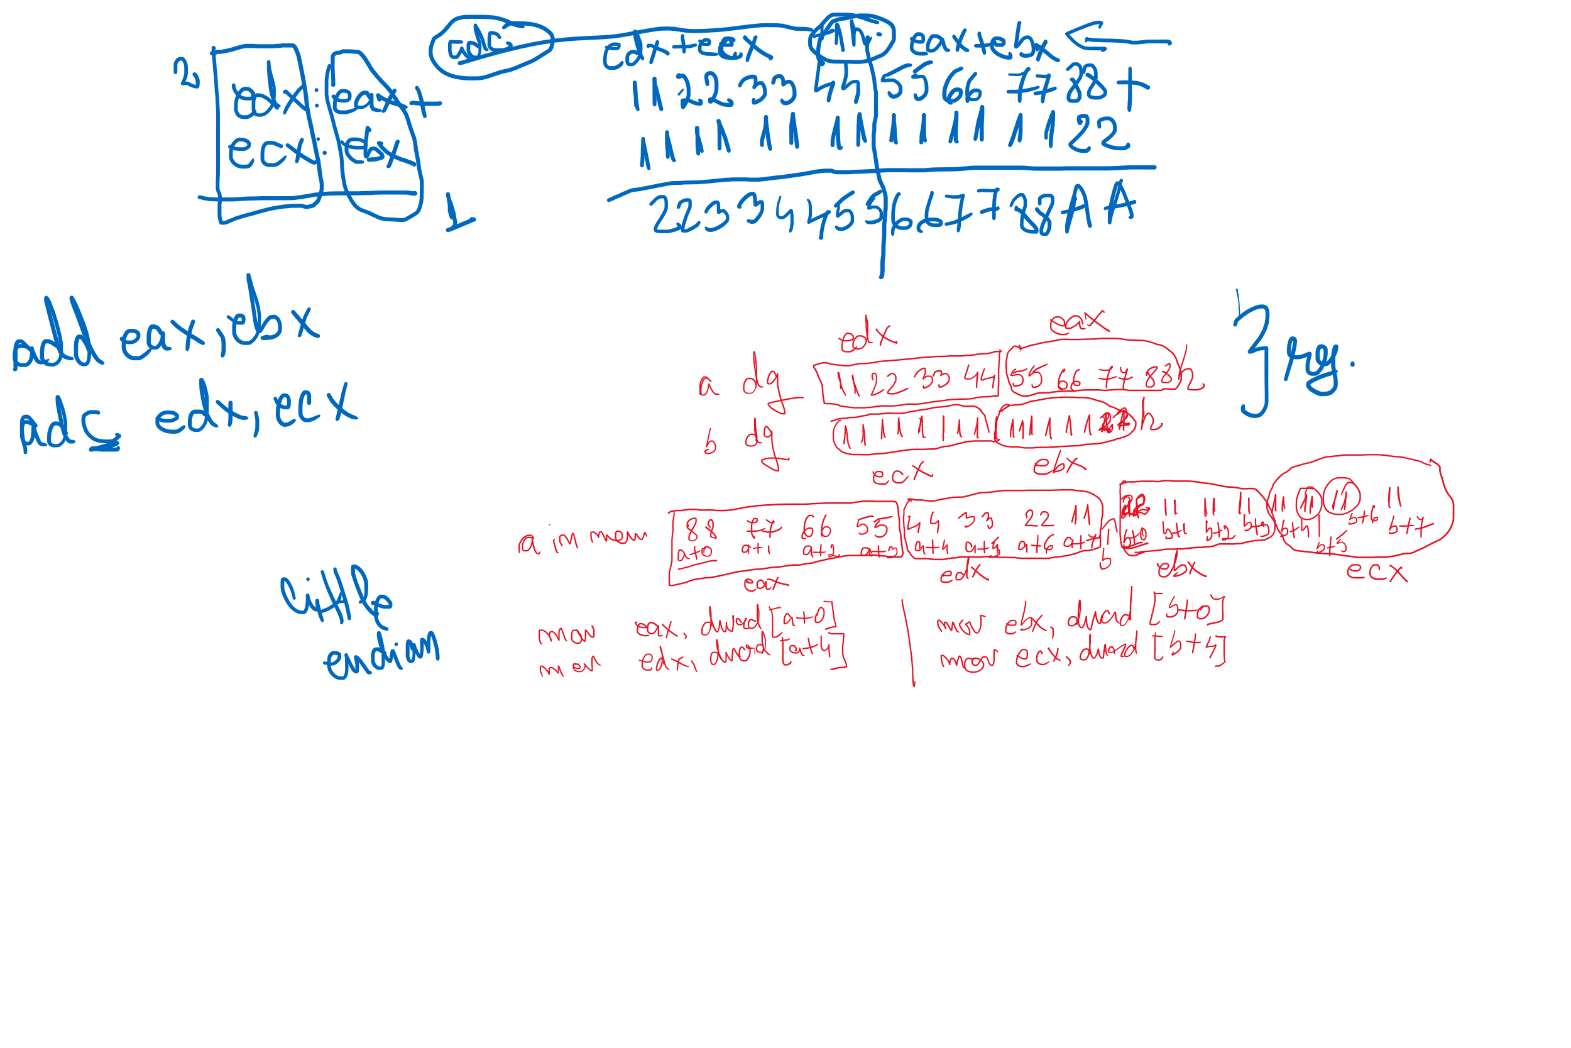 adc edx+ecx +1h. eax+ebx
2, edx:eax+
ecx:ebx
1
11 22 33 44 55 66 77 88 +
11 11 11 11 11 11 11 22
22 33 44 55 66 77 88 AA
add eax, ebx
adc edx, ecx
edx eax
a dq 11 22 33 44 55 66 77 88h
b dq 11 11 11 11 11 11 11 22h
ecx ebx
} rg.
a in mem 88 77 66 55 44 33 22 11 22 11 11 11 11 11 11 11
a+0 a+1 a+2 a+3 a+4 a+5 a+6 a+7 b b+0 b+1 b+2 b+3 b+4 b+5 b+6 b+7
eax edx ebx ecx
little
endian
mov eax, dword [a+0]
mov edx, dword [a+4]
mov ebx, dword [b+0]
mov ecx, dword [b+4]